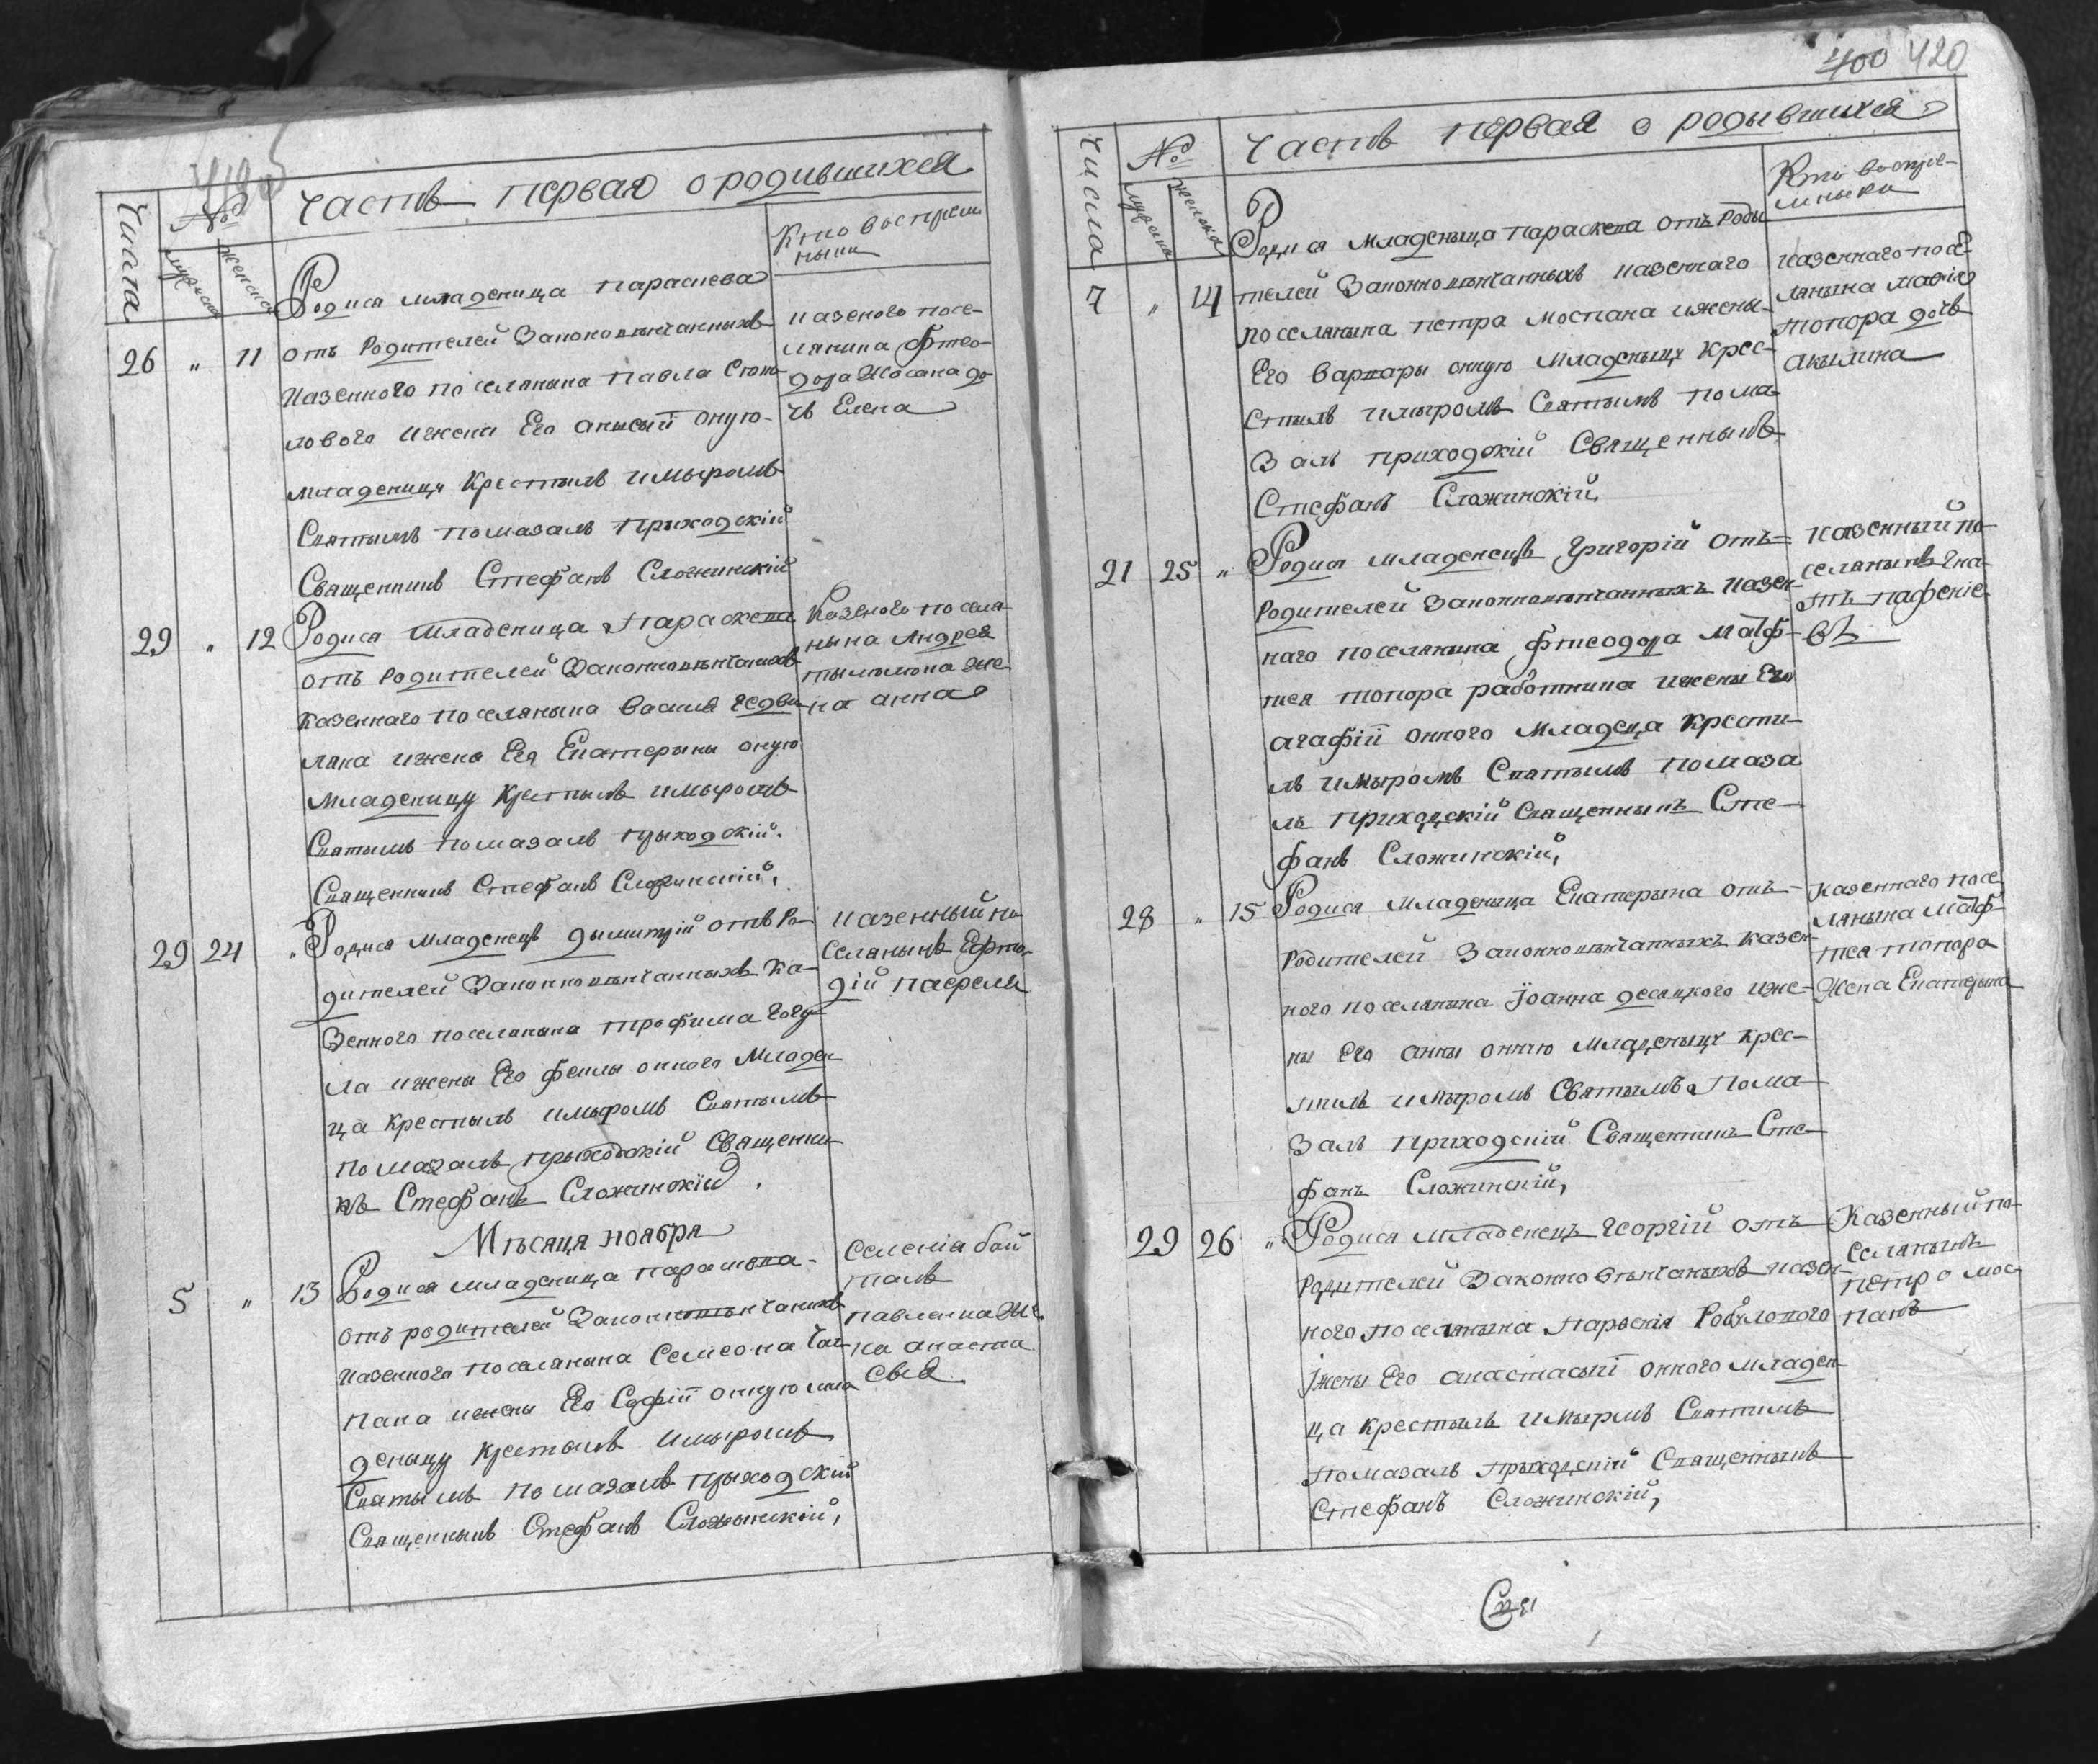 Часть первая о родившихся
Числа
№
мужеска
женска
Кто восприем
ныки
26 " 11
Родися младеница параскева
отъ родителей Законовѣнчанныхъ
казенного поселянына павла
лового ижени Его анисіи оную
младеницу Крестылъ имыромъ
Святымъ помазалъ приходскій
Священникъ Стефанъ Сложинскій
казеного посе-
лянина Фтео-
дора Жосана до-
чъ Елена
29 " 12
Родися Младеница Параскева
отъ родителей Законновѣнчаныхъ
казеннаго поселянына Васыля
лана ижены Его Екатерыны оную
младеницу Крестылъ имыромъ
Святымъ помазалъ прыходскій
Священникъ Стефанъ Сложинскій,
Казеного поселя
нына Андрея
же-
на анна
29 24 "
Родися младенецъ дымитрій отъ ро-
дителей Законновѣнчанныхъ ка-
зенного поселянына трофима
ла ижены Его феклы онного Младен
ца крестылъ имыромъ Святымъ
помазалъ прыходскій Священни-
къ Стефанъ Сложинскій.
казенный по-
селянынъ
дій
Мѣсяца ноября
5 " 13
Родися младеница параскева
отъ родителей Законновѣнчаныхъ
казенного поселянына Семеона Чаи-
пана ижены Его Софіи онную мла
деныцу крестылъ имыромъ
Святымъ помазалъ прыходскій
Священныкъ Стефанъ Сложынскій,
Селенія бай
талъ
павленка же-
на анаста
сыя
400 420
Часть первая о родывшихся
Числа
№
мужеска
женска
Кто восприе-
мныки
7 " 14
Родися Младеныца параскева отъ роды
телей Законновѣнчанныхъ казенного
поселянына петра Моспана ижены
Его варвары онную младеныцу крес-
стилъ имыромъ Святымъ пома
залъ приходскій Священныкъ
Стефанъ Сложинскій,
казенного посе-
лянына
топора дочъ
акилина
21 25 "
Родися младенецъ Григорій отъ
родителей Законновѣнчанныхъ казен-
наго поселянына Фтеодора Матф-
тея топора работника ижены Его
агафіи онного Младеца крести-
лъ имыромъ Святымъ помаза
лъ приходскій Священныкъ Сте-
фанъ Сложинскій,
казенный по-
селянынъ Гна-
тъ пафеніе-
въ
28 " 15
Родися младеныца Екатерына отъ
родителей Законновѣнчанныхъ казен
ного поселянына Іоанна десяцкого иже-
ны Его анны онную младеныцу крес-
тилъ имыромъ Святымъ Пома
залъ приходскій Священникъ Сте-
фанъ Сложинскій,
казенного посе
лянына Матф-
тея топора
Жена Екатерына
29 26 "
Родися младенецъ Георгій отъ
родителей Законновѣнчаныхъ казен-
ного поселянына
Іжены Его анастасыи онного младен
ца крестылъ имыромъ Святимъ
помазалъ прыходскій Священныкъ
Стефанъ Сложинскій,
Казенный по-
селянынъ
петро мос-
панъ